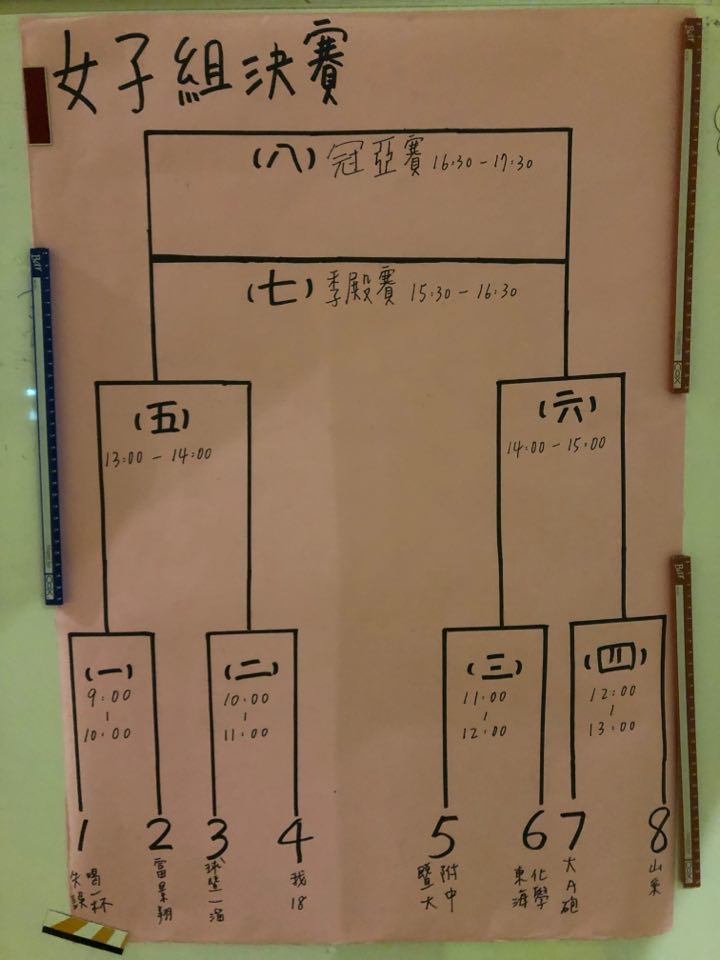 女子組決賽
(八) 冠亞賽 16:30-17:30
(七) 季殿賽 15:30-16:30
(五)
13:00-14:00
(六)
14:00-15:00
(一)
9:00
|
10:00
(二)
10:00
|
11:00
(三)
11:00
|
12:00
(四)
12:00
|
13:00
1 2 3 4 5 6 7 8
失誤
喝一杯
當景翔
球暨一
我18
暨大
附中
東海
化學
大A砲
山